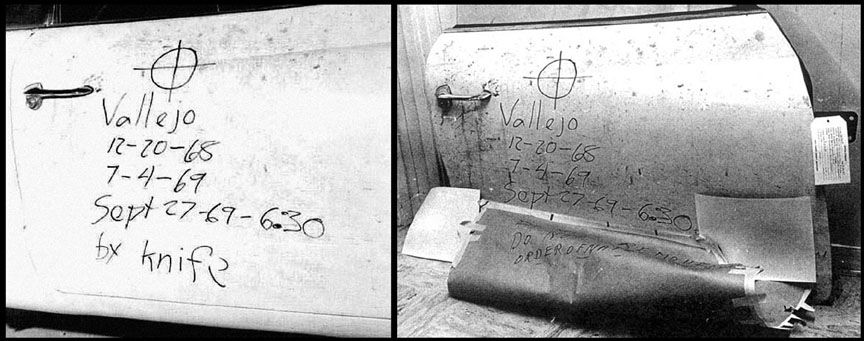 Vallejo
12-20-68
7-4-69
Sept 27-69-6:30
by knife
Vallejo
12-20-68
7-4-69
Sept 27-69-6:30
DO
ORDER OF